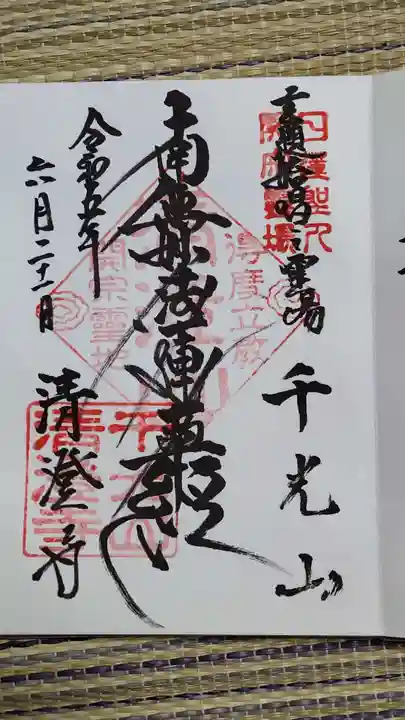 玄題始唱之霊場
千光山
日蓮聖人
得度立教
南無妙法蓮華経
開宗霊地
令和五年
六月二十一日
清澄寺
千光山
清澄寺